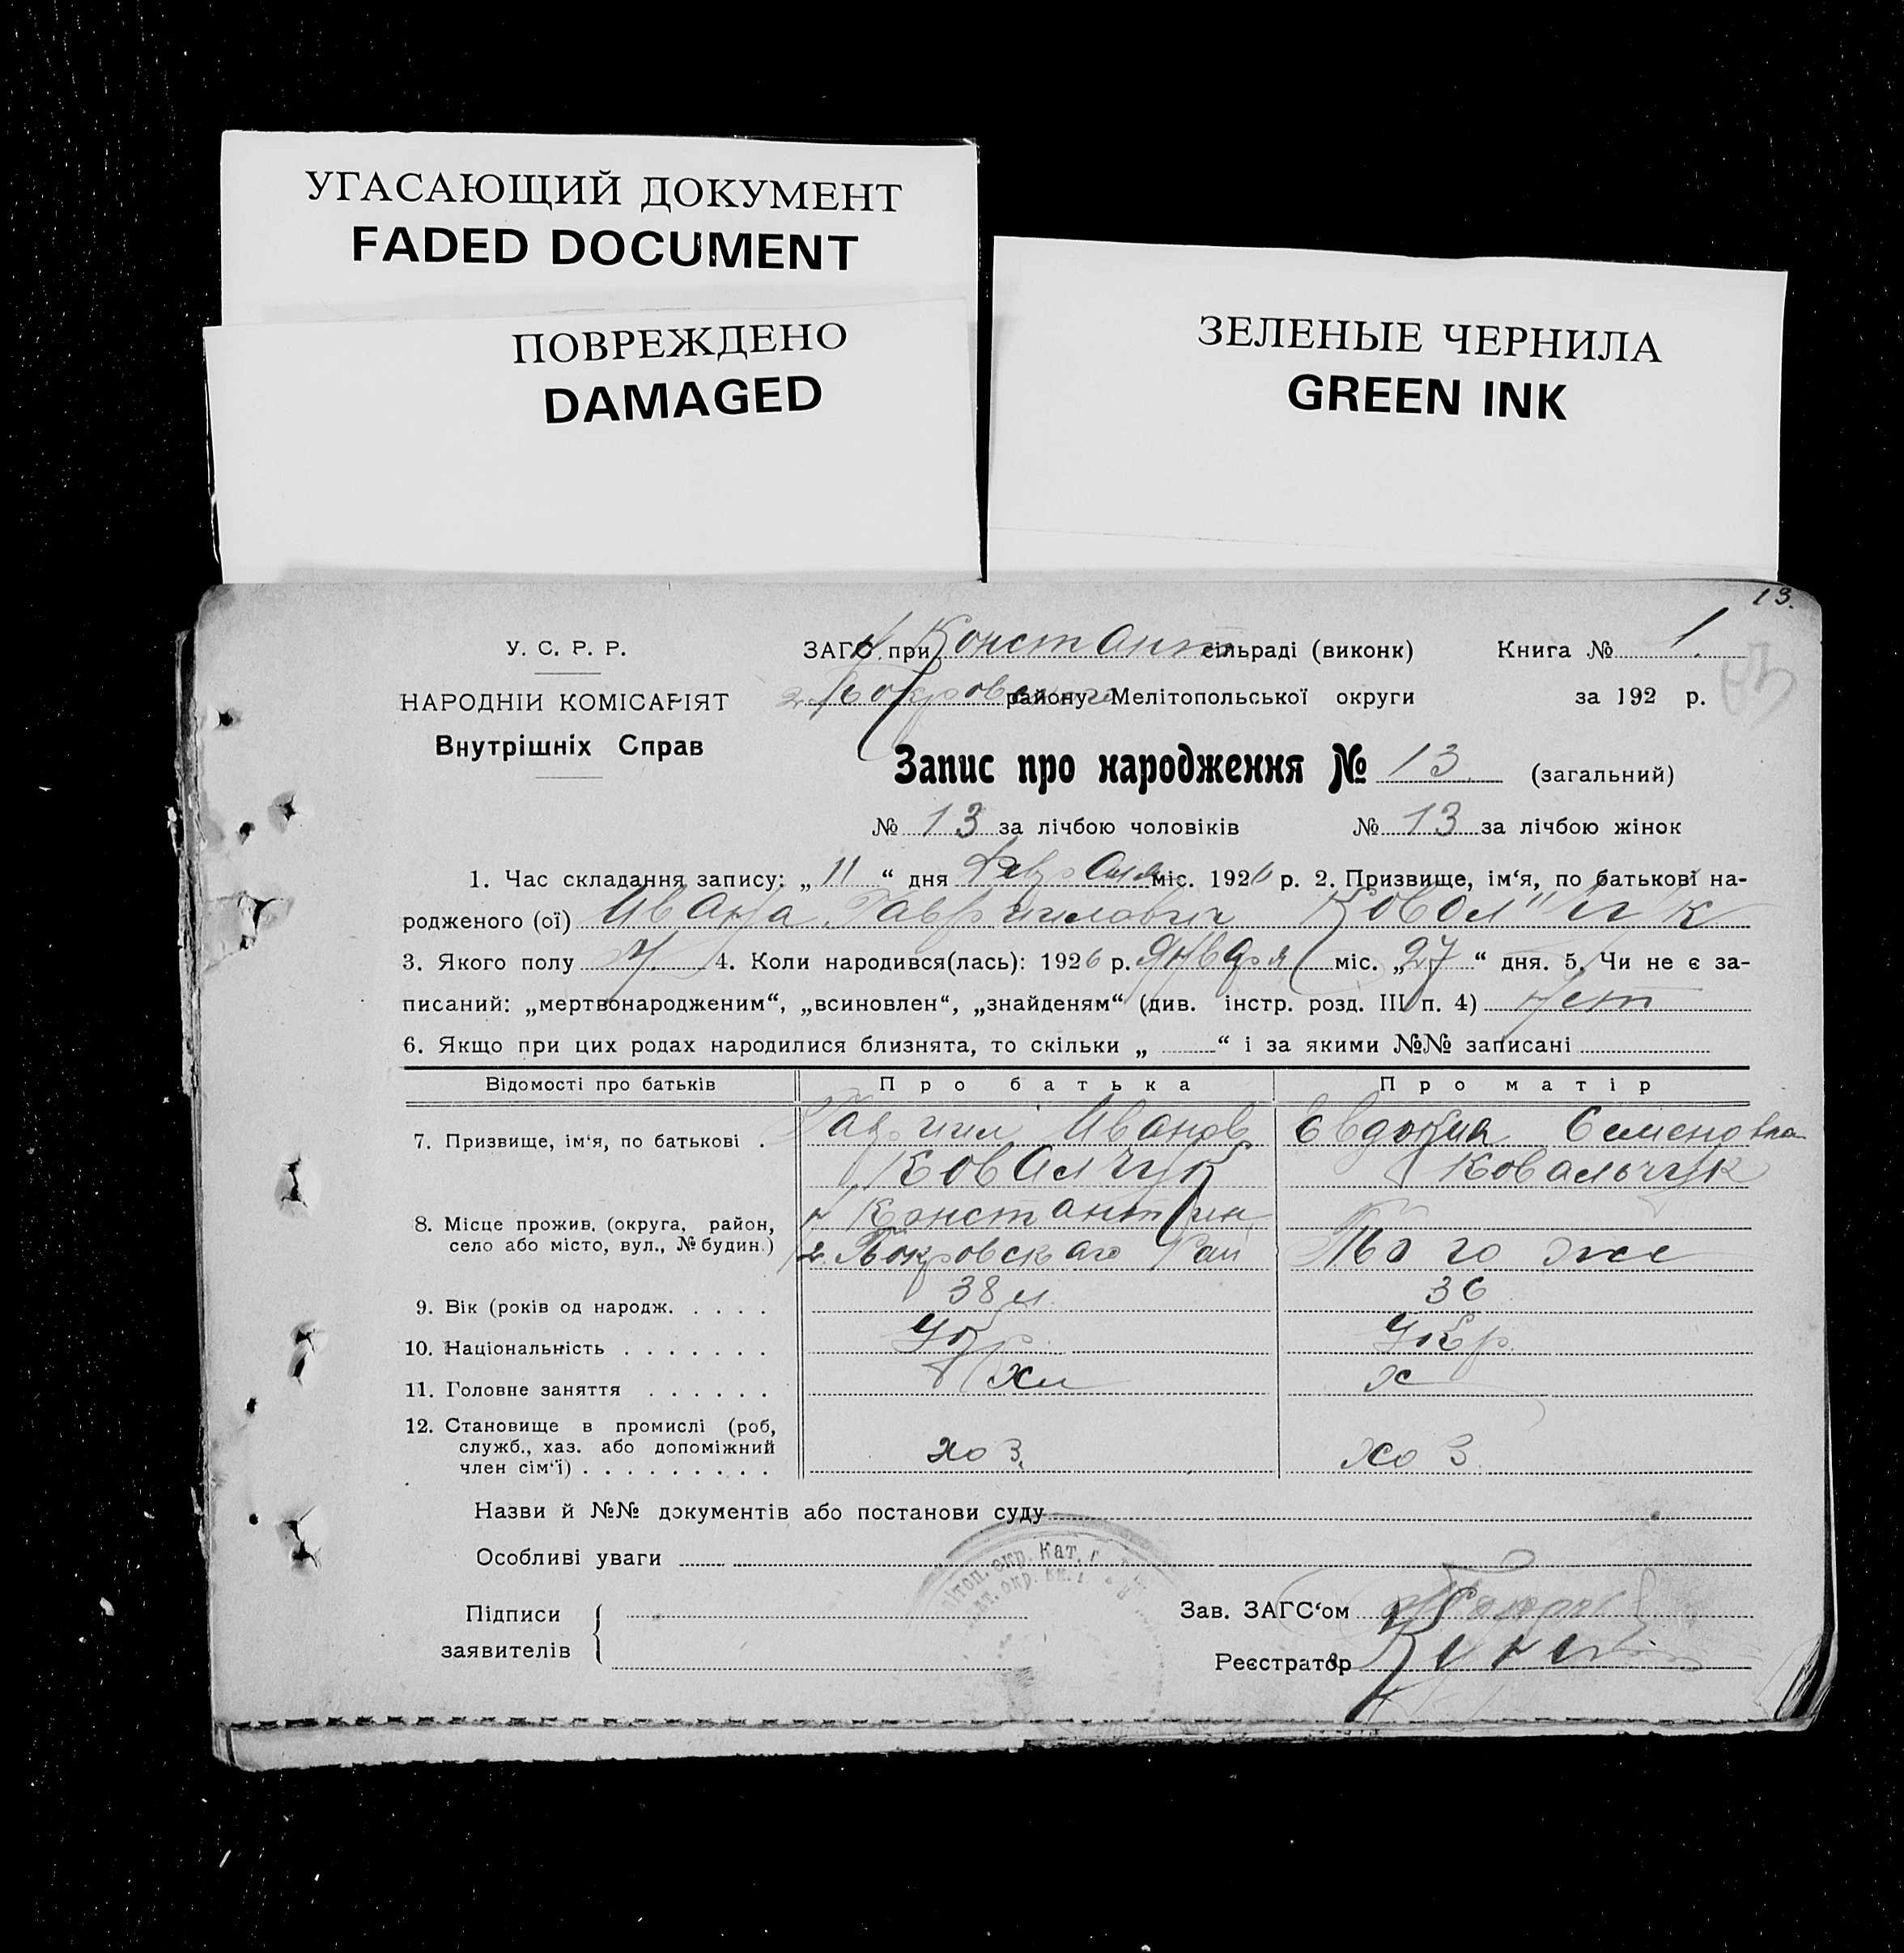 УГАСАЮЩИЙ ДОКУМЕНТ
FADED DOCUMENT
ПОВРЕЖДЕНО
DAMAGED
ЗЕЛЕНЫЕ ЧЕРНИЛА
GREEN INK
13.
У. С. Р. Р.
НАРОДНІЙ КОМІСАРІЯТ
Внутрішніх Справ
ЗАГС при Константи сільраді (виконк) Книга № 1.
2 Покровского району Мелітопольської округи за 192 р.
Запис про народження № 13 (загальний)
№ 13 за лічбою чоловіків № 13 за лічбою жінок
1. Час складання запису: „ 11 “ дня Февраля міс. 1926 р. 2. Призвище, ім‘я, по батькові на-
родженого (ої) Ивана Гавриилович Ковальчук
3. Якого полу М. 4. Коли народився(лась): 1926 р. Января міс. „ 27 “ дня. 5. Чи не є за-
писаний: „мертвонародженим“, „всиновлен“, „знайденям“ (див. інстр. розд. III п. 4) Нет
6. Якщо при цих родах народилися близнята, то скільки „ “ і за якими №№ записані
Відомості про батьків Про батька Про матір
7. Призвище, ім‘я, по батькові . Гавриил Иванов Евдокия Семеновна
Ковальчук Ковальчук
8. Місце прожив. (округа, район, Н Константин
село або місто, вул., № будин.) 2 Покровскаго Рай Того же
9. Вік (років од народж. . . . . 38 36
10. Національність . . . . . . . Укр. Укр.
11. Головне заняття . . . . . . Хл Х
12. Становище в промислі (роб,
служб., хаз. або допоміжний
член сім‘ї) . . . . . . . . . хоз. хоз
Назви й №№ документів або постанови суду
Особливі уваги
Підписи
заявителів
Зав. ЗАГС‘ом
Реєстратор